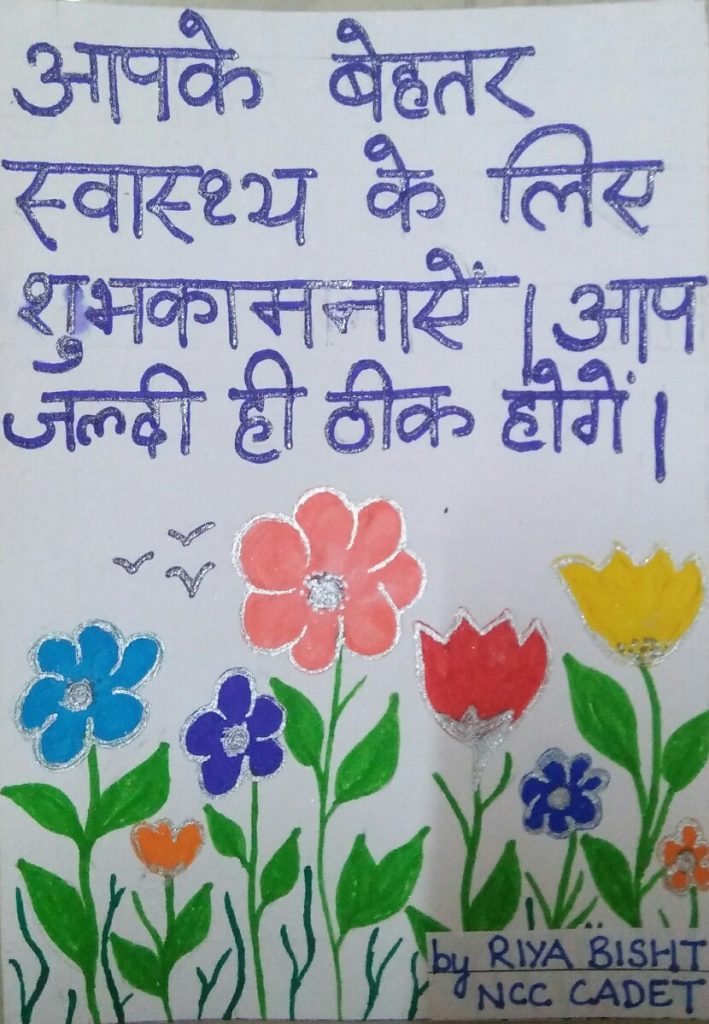 आपके बेहतर
स्वास्थ्य के लिए
शुभकामनाऐं । आप
जल्दी ही ठीक होगें ।
by RIYA BISHT
NCC CADET